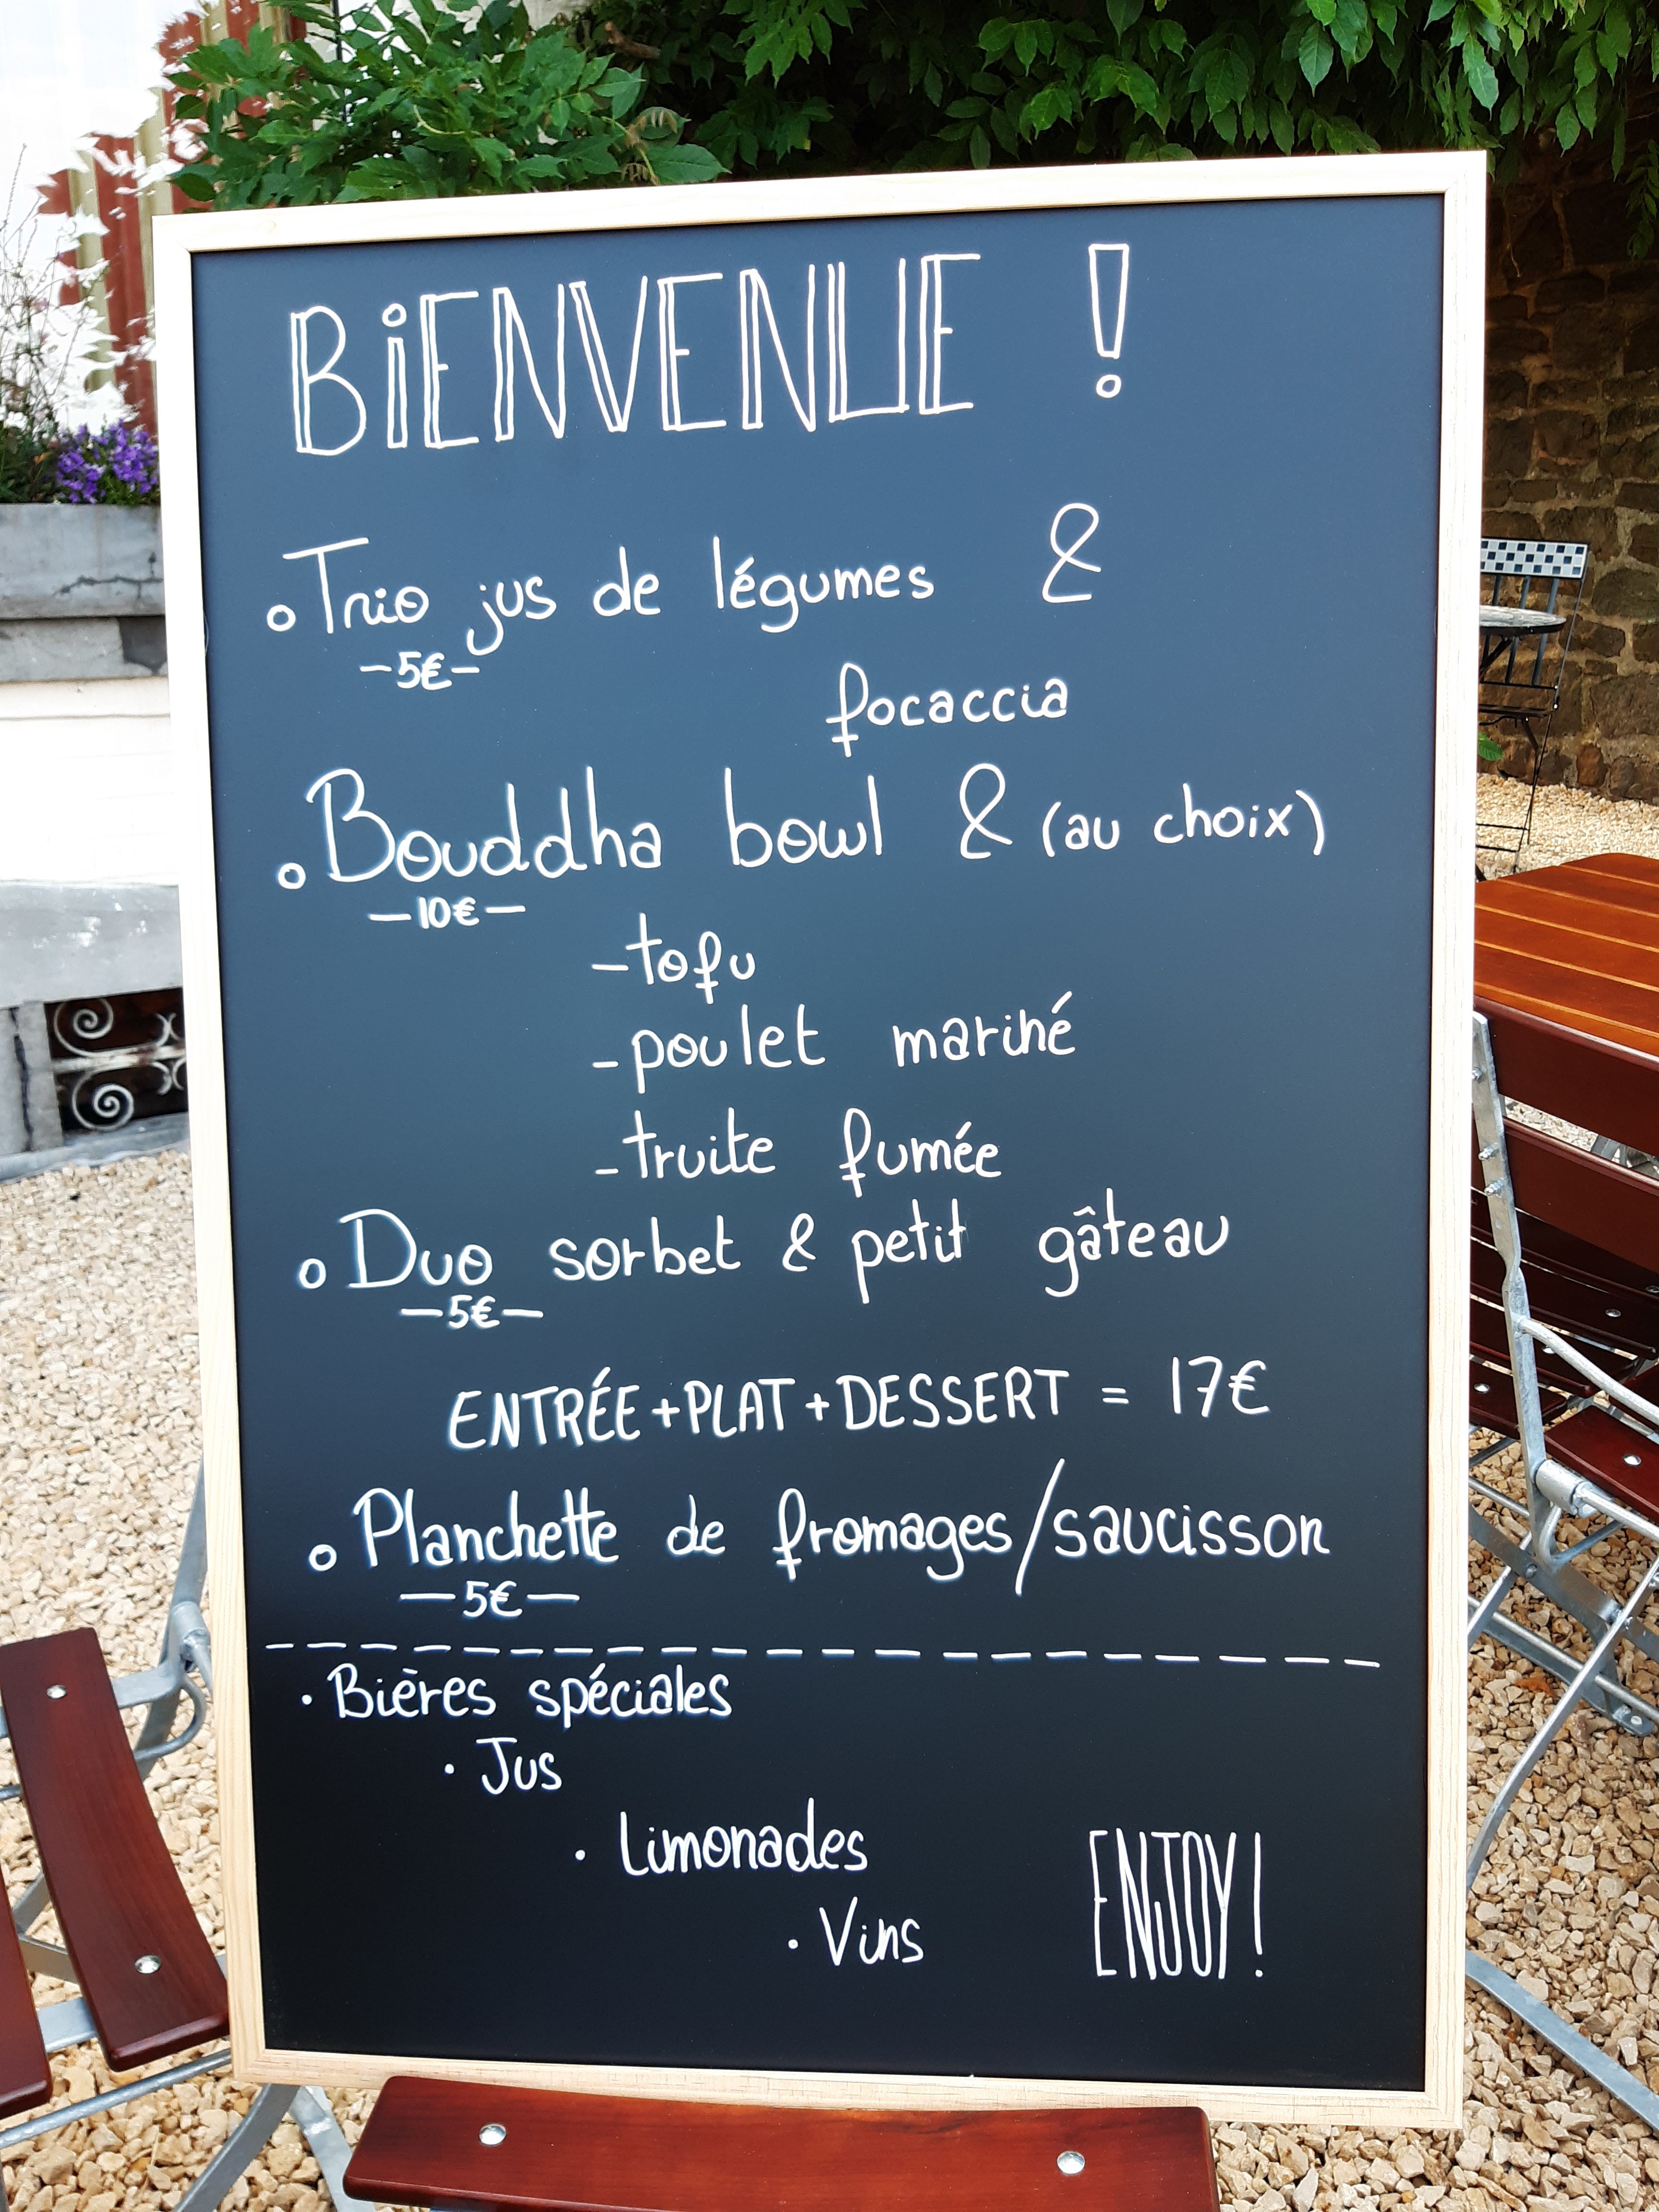 BiENVENUE !
o Trio jus de légumes &
-5€-
focaccia
o Bouddha bowl & (au choix)
-10€-
-tofu
-poulet mariné
-truite fumée
o Duo sorbet & petit gâteau
-5€-
ENTRÉE+PLAT+DESSERT = 17€
o Planchette de fromages/saucisson
-5€-
· Bières spéciales
· Jus
· Limonades
· Vins
ENJOY!